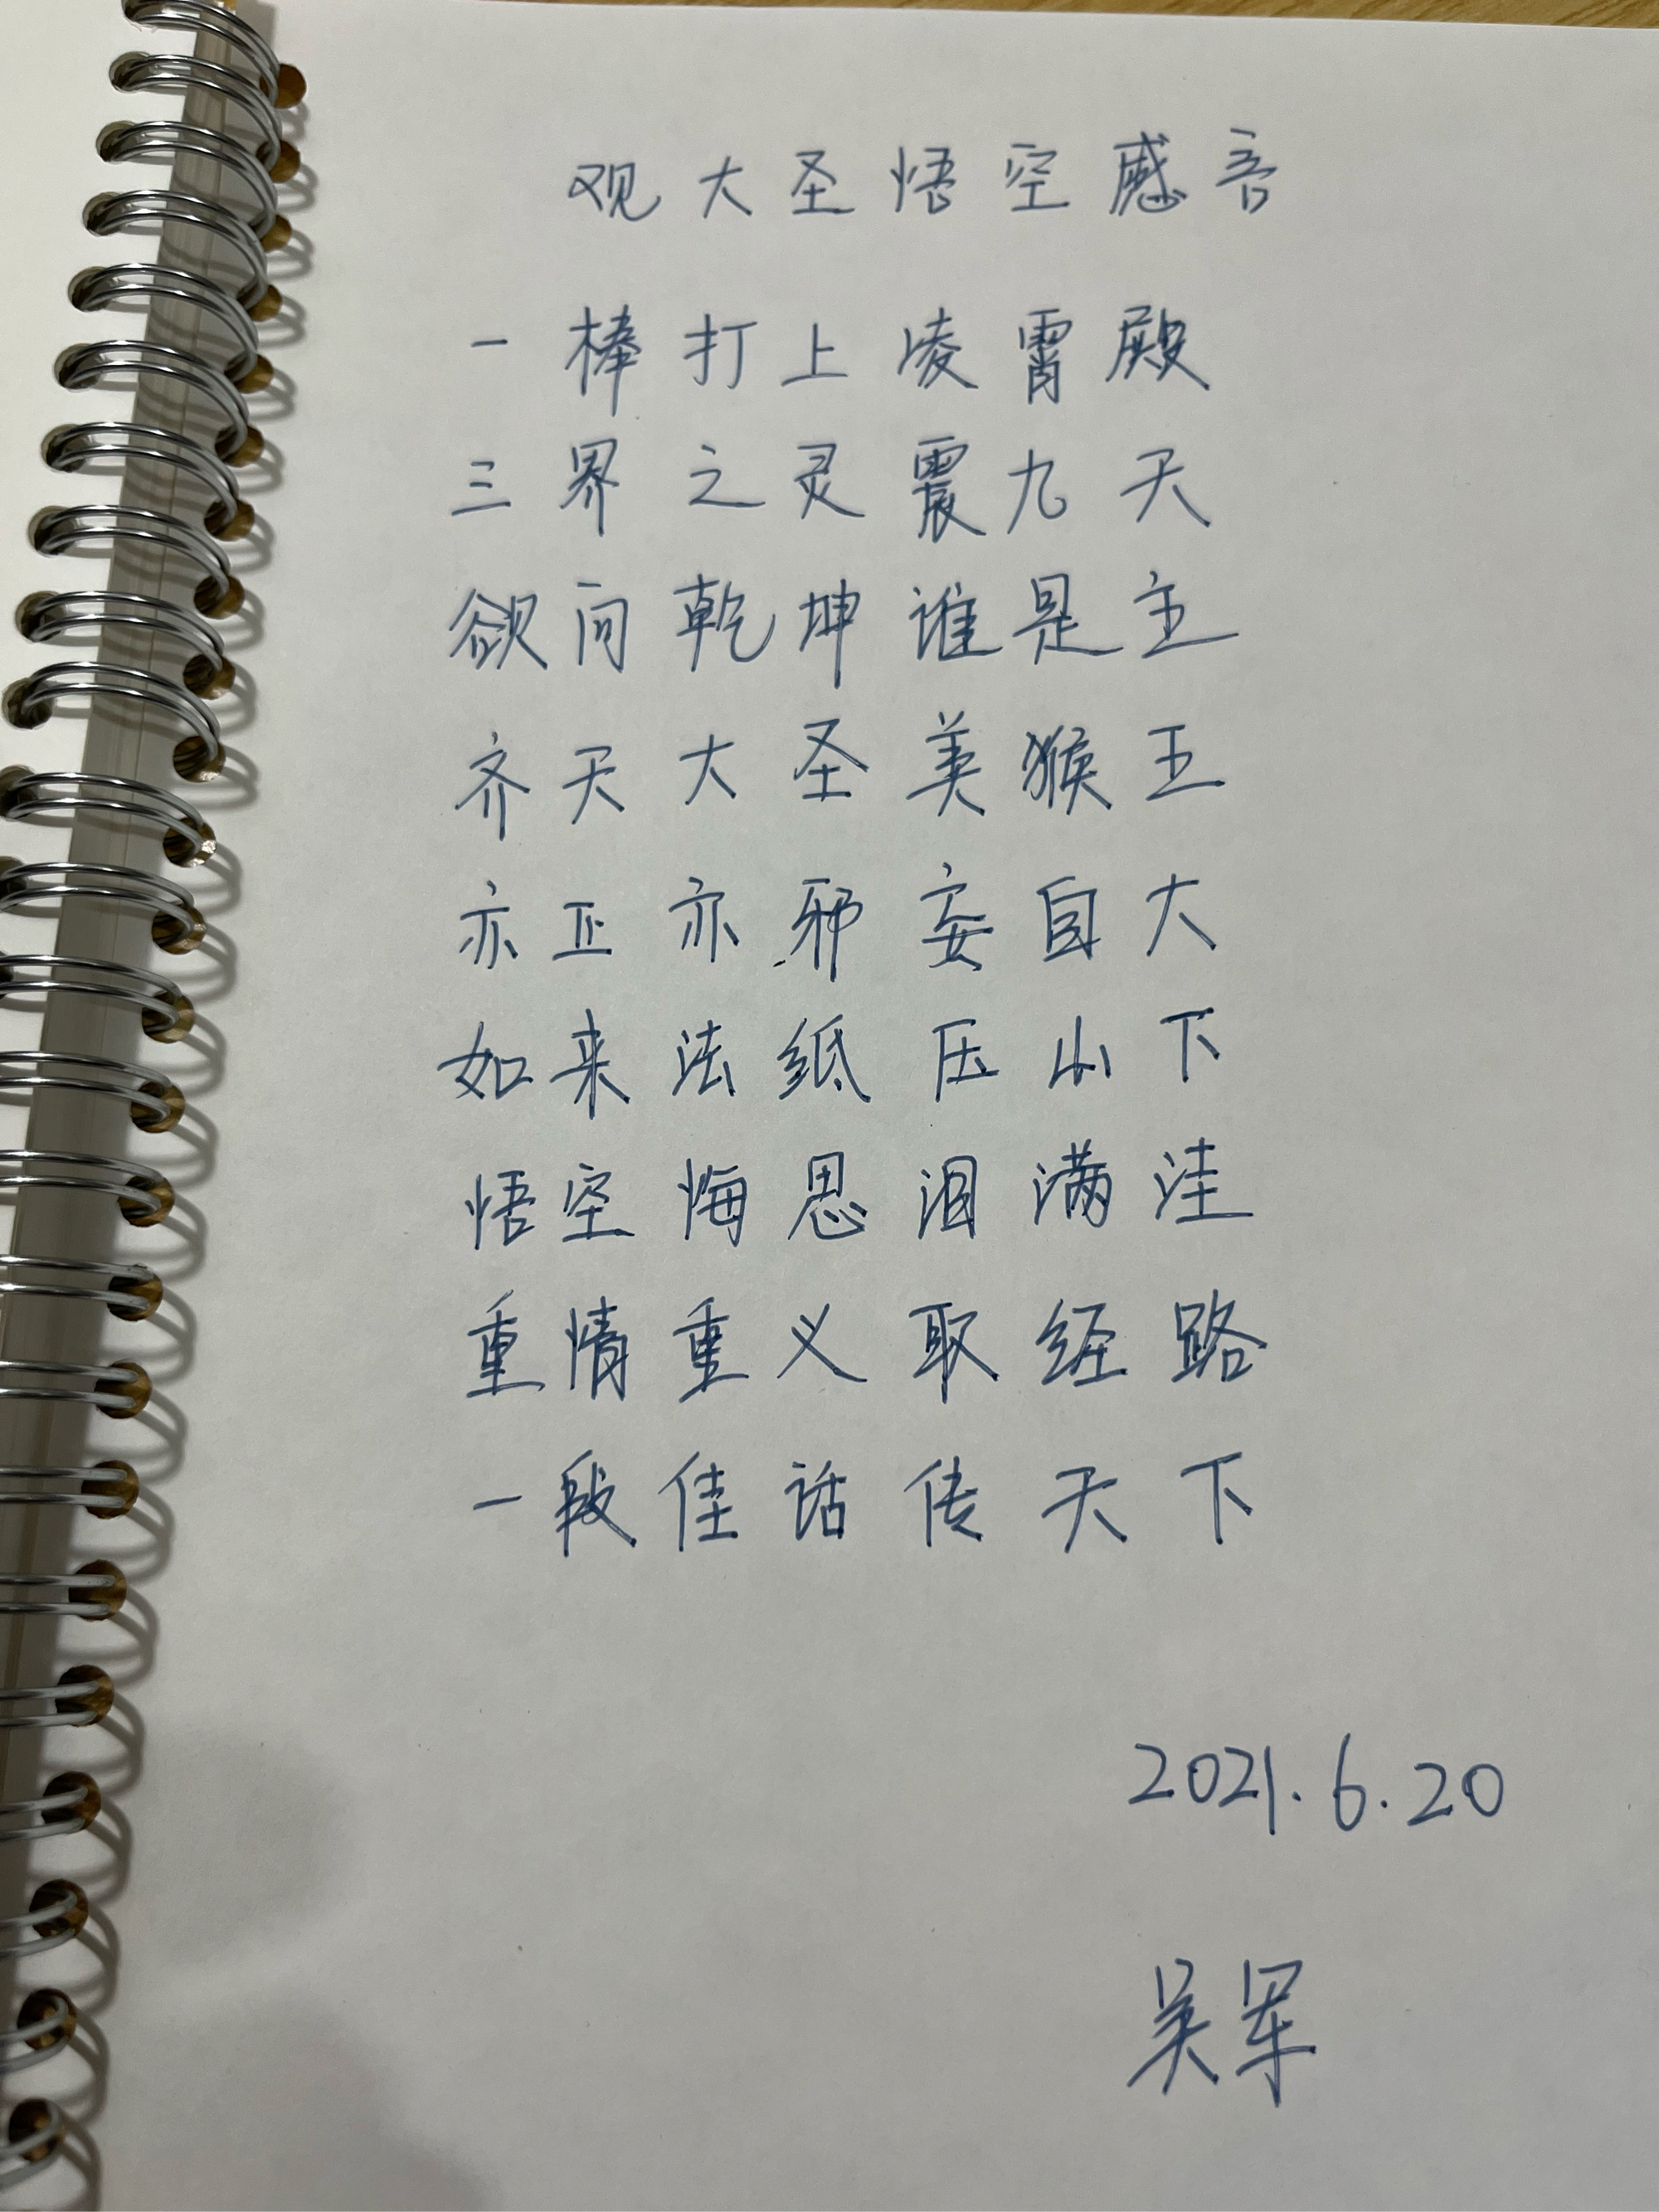 观大圣悟空感言
一棒打上凌霄殿
三界之灵震九天
欲问乾坤谁是主
齐天大圣美猴王
亦正亦邪妄自大
如来法纸压山下
悟空悔思泪满洼
重情重义取经路
一段佳话传天下
2021.6.20
吴军